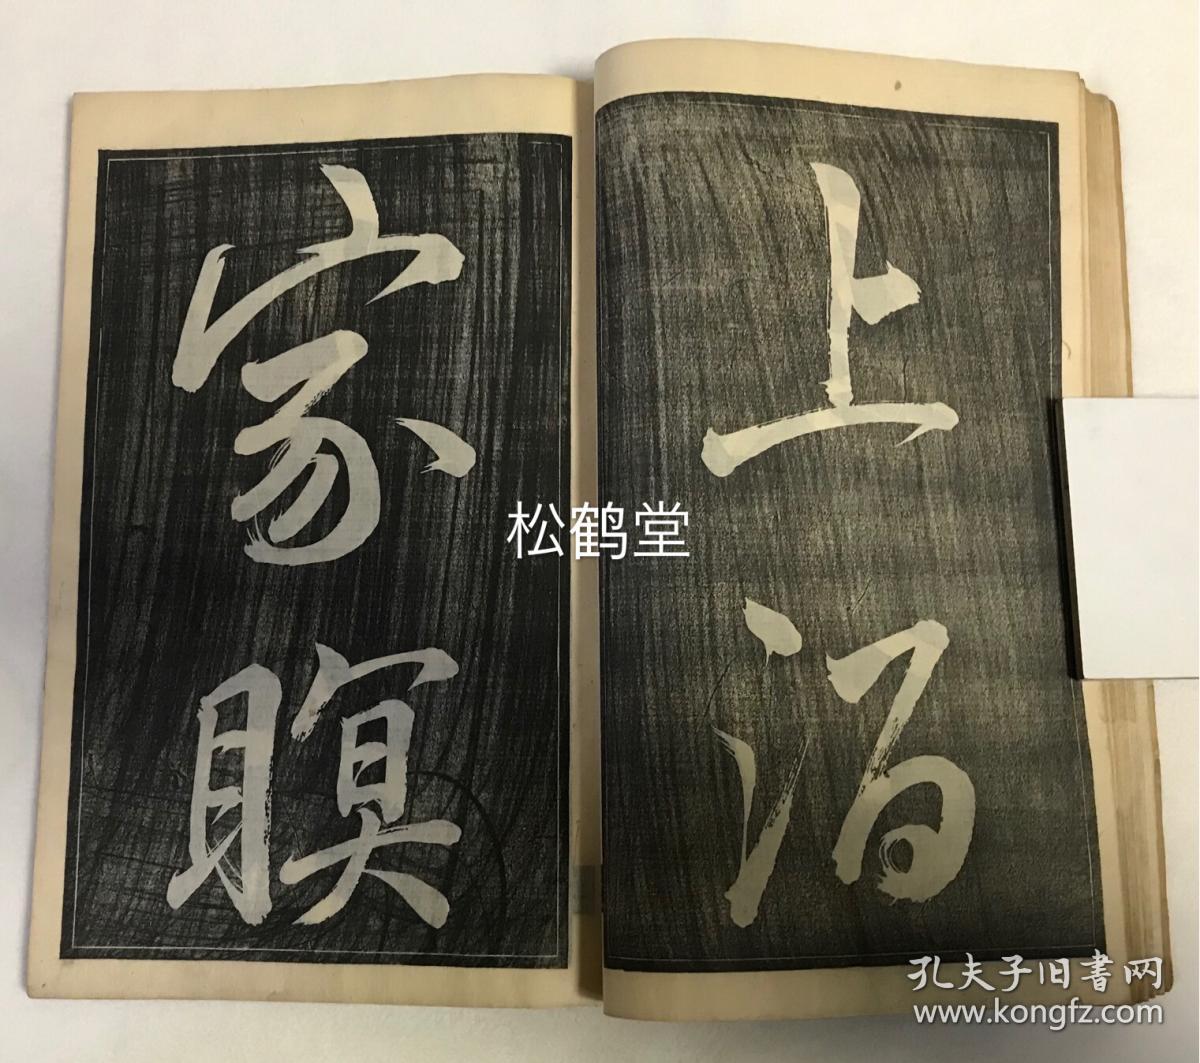 上
家
瞑
松鹤堂
孔夫子旧书网
www.kongfz.com